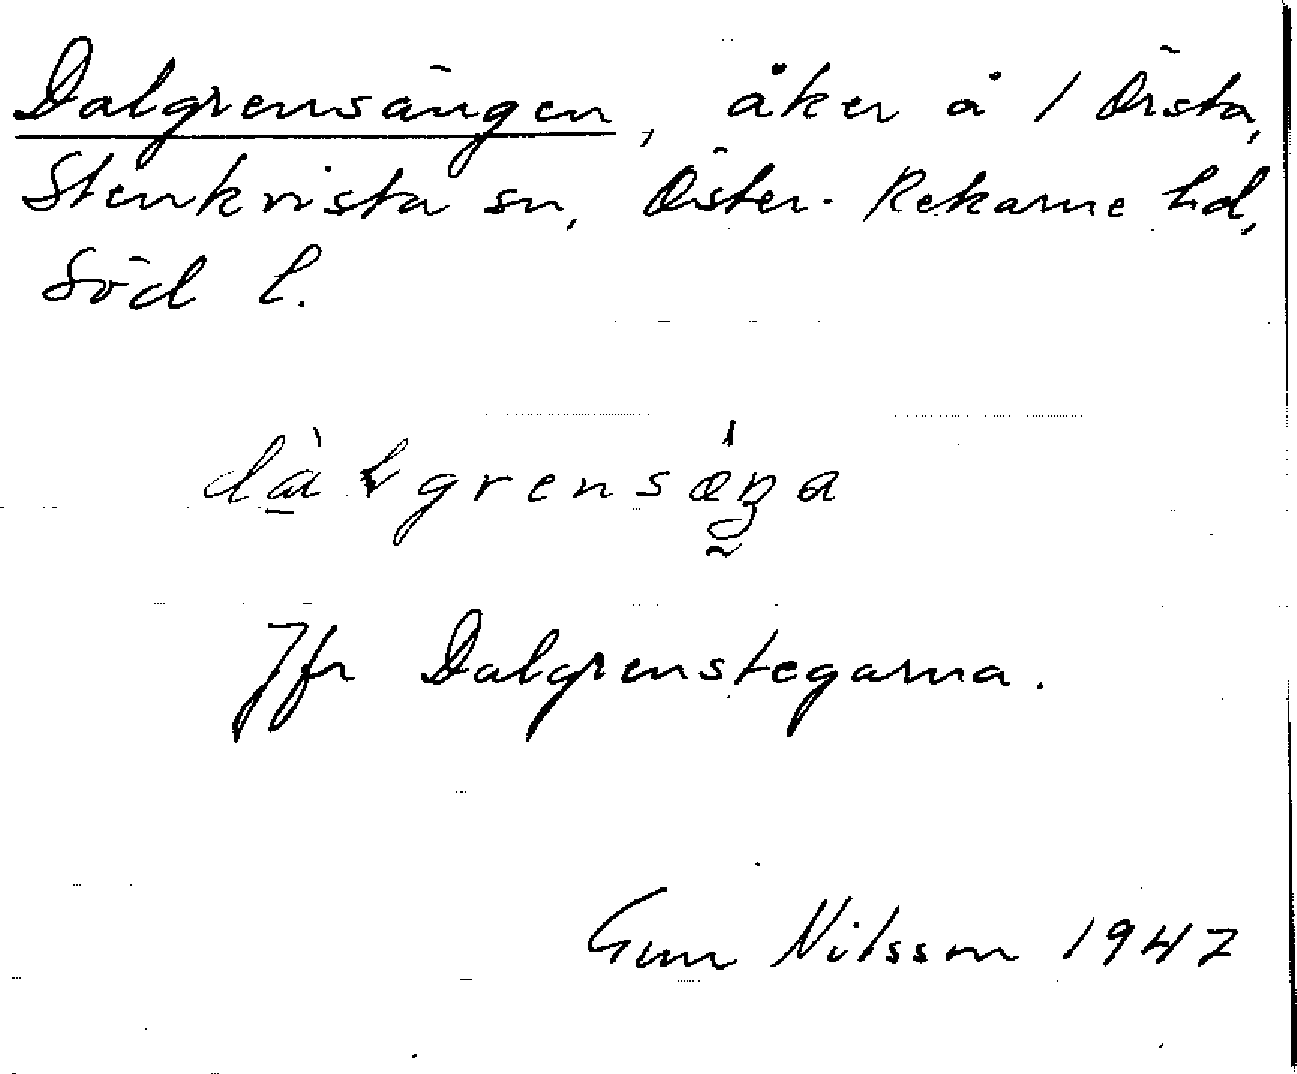 Dalgrensängen, åker å 1 Örsta,
Stenkvista sn, Öster-Rekarne hd,
Söd l.
Jfr Dalgrenstegarna.
Gun Nilsson 1947